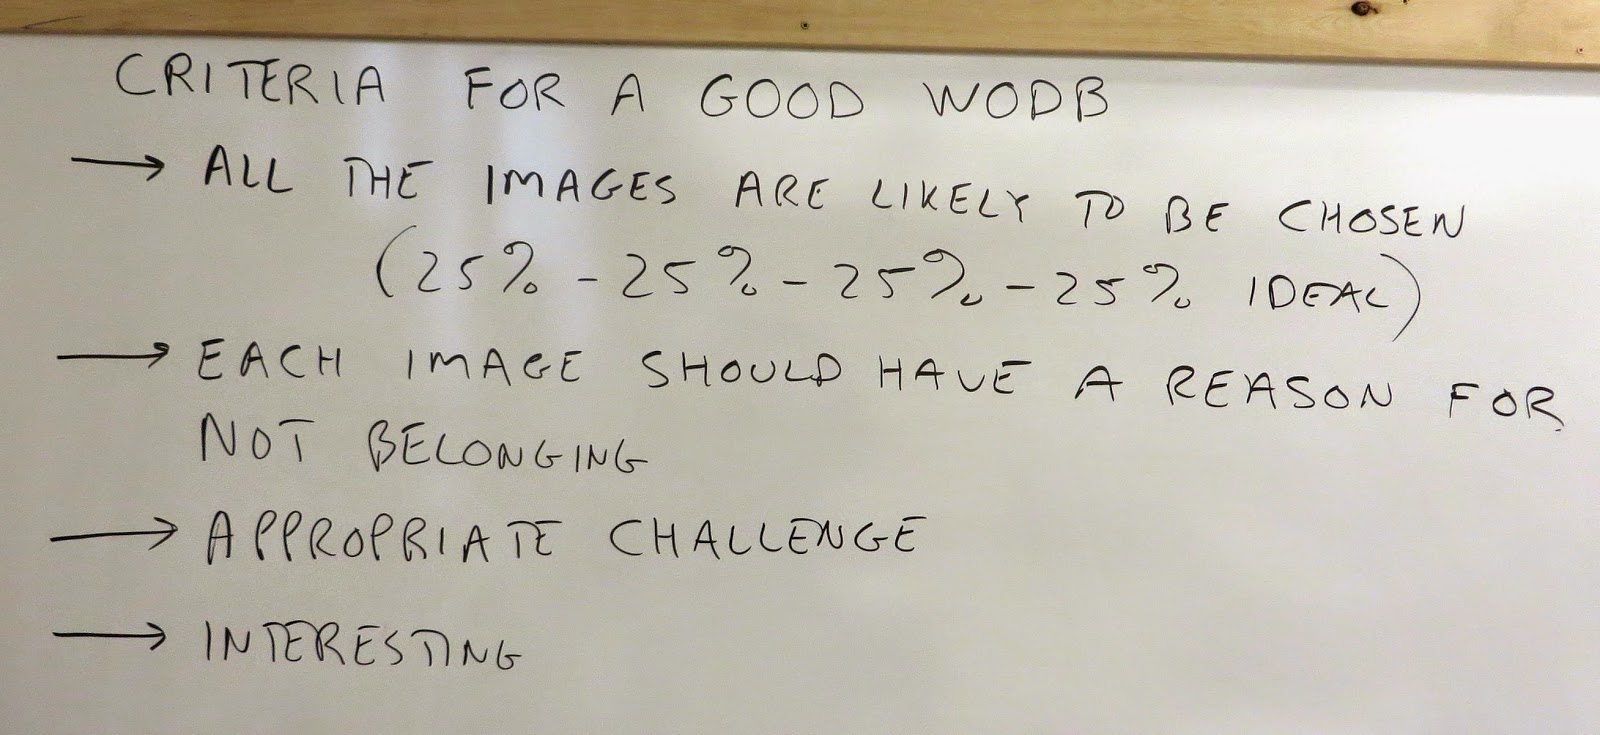 CRITERIA FOR A GOOD WODB
→ ALL THE IMAGES ARE LIKELY TO BE CHOSEN
(25% - 25% - 25% - 25% IDEAL)
→ EACH IMAGE SHOULD HAVE A REASON FOR
NOT BELONGING
→ APPROPRIATE CHALLENGE
→ INTERESTING